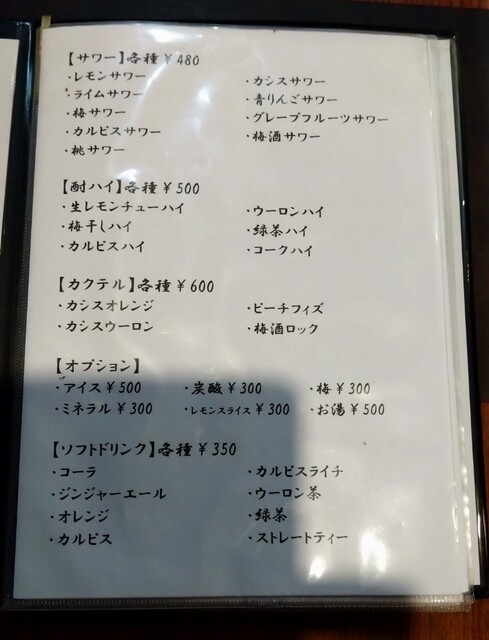 【サワー】各種￥480
・レモンサワー ・カシスサワー
・ライムサワー ・青りんごサワー
・梅サワー ・グレープフルーツサワー
・カルピスサワー ・梅酒サワー
・桃サワー
【酎ハイ】各種￥500
・生レモンチューハイ ・ウーロンハイ
・梅干しハイ ・緑茶ハイ
・カルピスハイ ・コークハイ
【カクテル】各種￥600
・カシスオレンジ ・ピーチフィズ
・カシスウーロン ・梅酒ロック
【オプション】
・アイス￥500 ・炭酸￥300 ・梅￥300
・ミネラル￥300 ・レモンスライス￥300 ・お湯￥500
【ソフトドリンク】各種￥350
・コーラ ・カルピスライチ
・ジンジャーエール ・ウーロン茶
・オレンジ ・緑茶
・カルピス ・ストレートティー